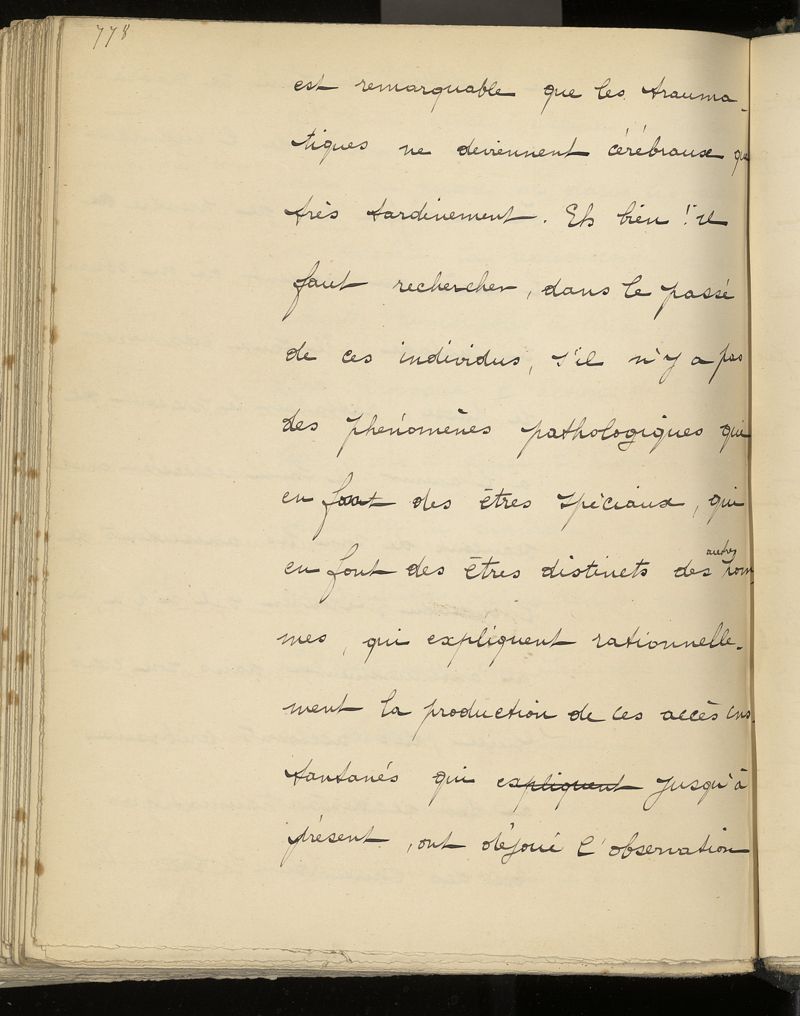 778
est remarquable que les trauma-
tiques ne deviennent cérébraux que
très tardivement. Eh bien! il
faut rechercher, dans le passé
de ces individus, s'il n'y a pas
des phénomènes pathologiques qui
en font des êtres spéciaux, qui
en font des êtres distincts des autres hom-
mes, qui expliquent rationnelle-
ment la production de ces accès ins-
tantanés qui expliquent jusqu'à
présent, ont déjoué l'observation